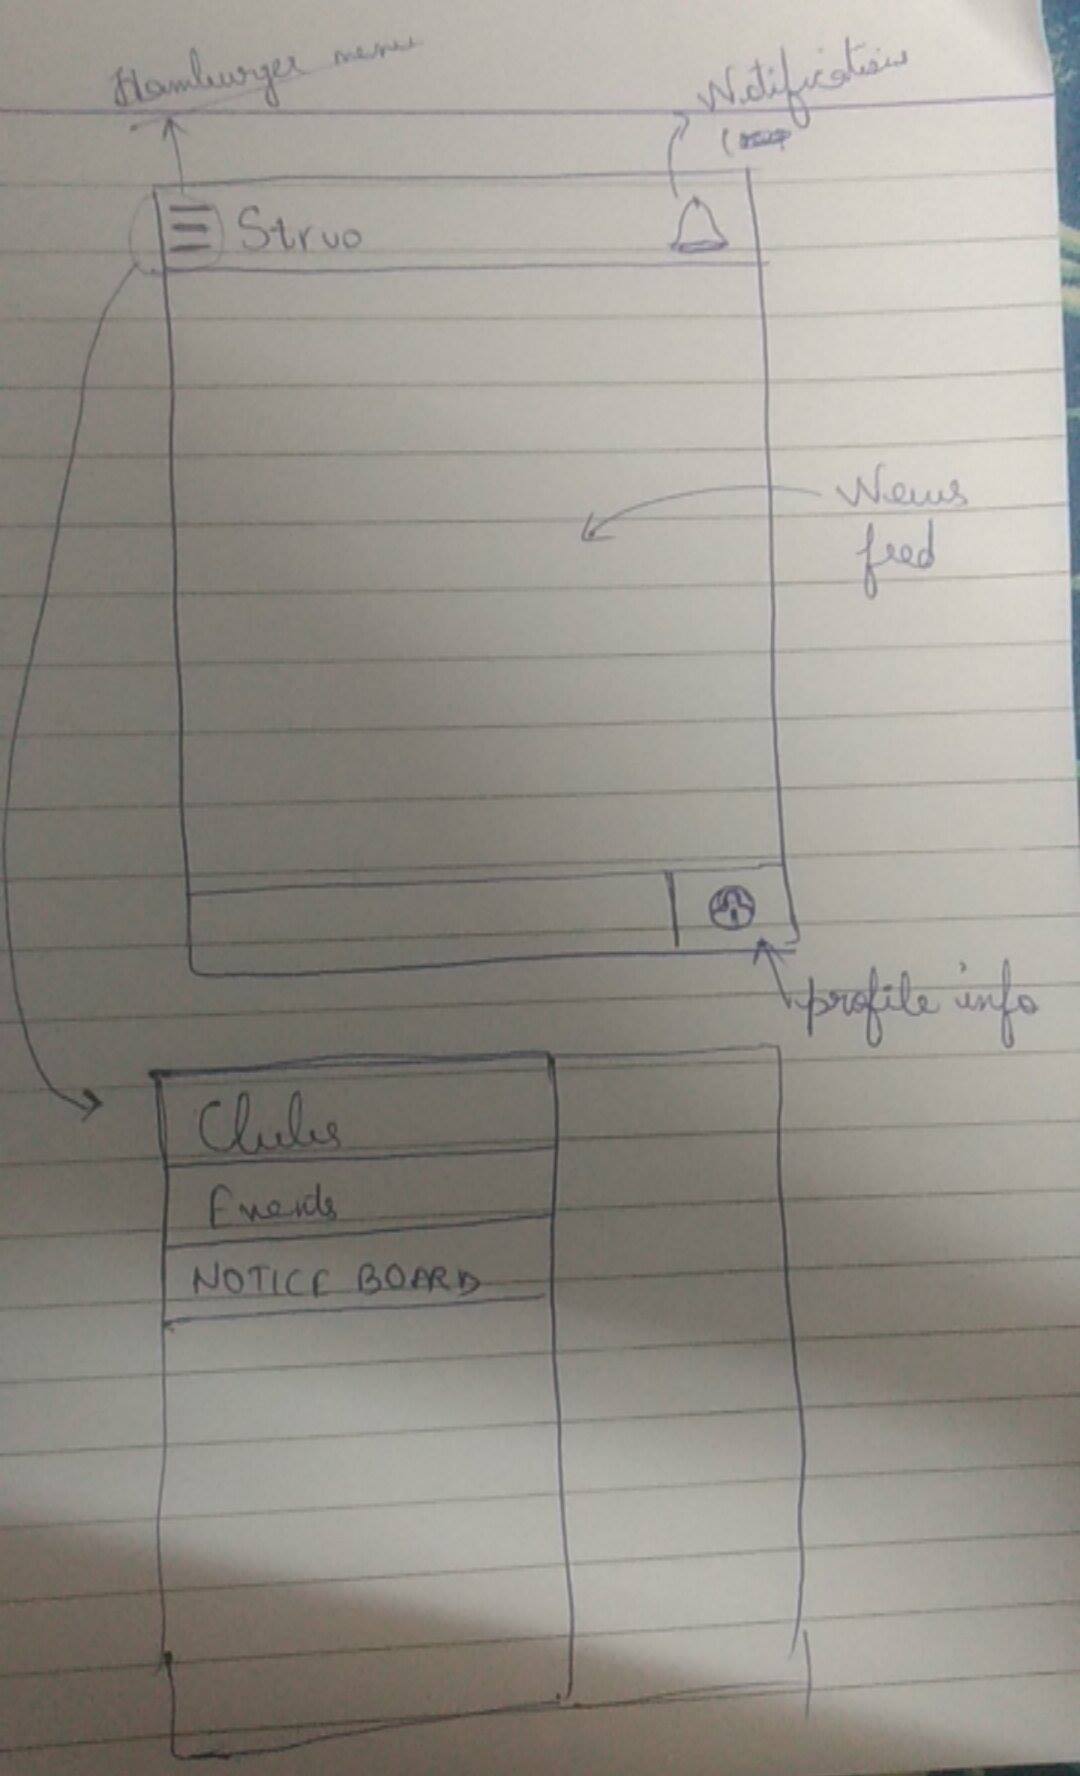 Hamburger menu
Notifications
Struo
News
feed
profile info
Clubs
Events
NOTICE BOARD